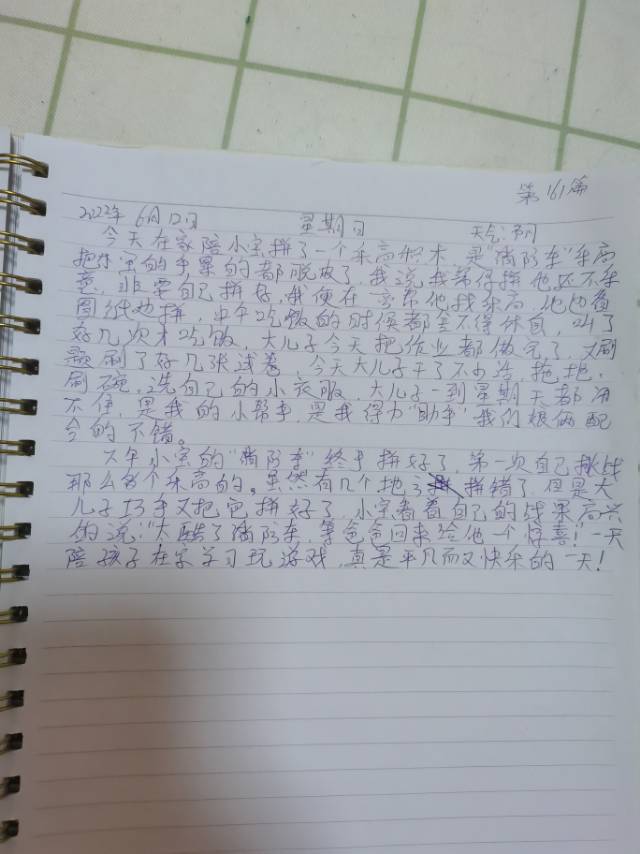 第161篇
2022年6月12日 星期日 天气:阴
今天在家陪小宝拼了一个乐高积木,是"消防车"乐高
把小宝的手累的都脱皮了,我说我帮你拼他还不乐
意,非要自己拼好,我便在旁帮他找乐高,他也看
图纸也拼,中午吃饭的时候都舍不得休息,叫了
好几次才吃饭,大儿子今天把作业都做完了,又刷
题刷了好几张试卷,今天大儿子干了不少活,拖地,
刷碗,洗自己的小衣服,大儿子一到星期天都闲
不住,是我的小帮手,是我得力"助手"我们娘俩配
合的不错。
下午小宝的"消防车"终于拼好了,第一次自己挑战
那么多个乐高的。虽然有几个地方拼错了,但是大
儿子巧手又把它拼好了,小宝看着自己的战果高兴
的说:"太酷了消防车,等爸爸回来给他一个惊喜!"一天
陪孩子在家学习玩游戏,真是平凡而又快乐的一天!